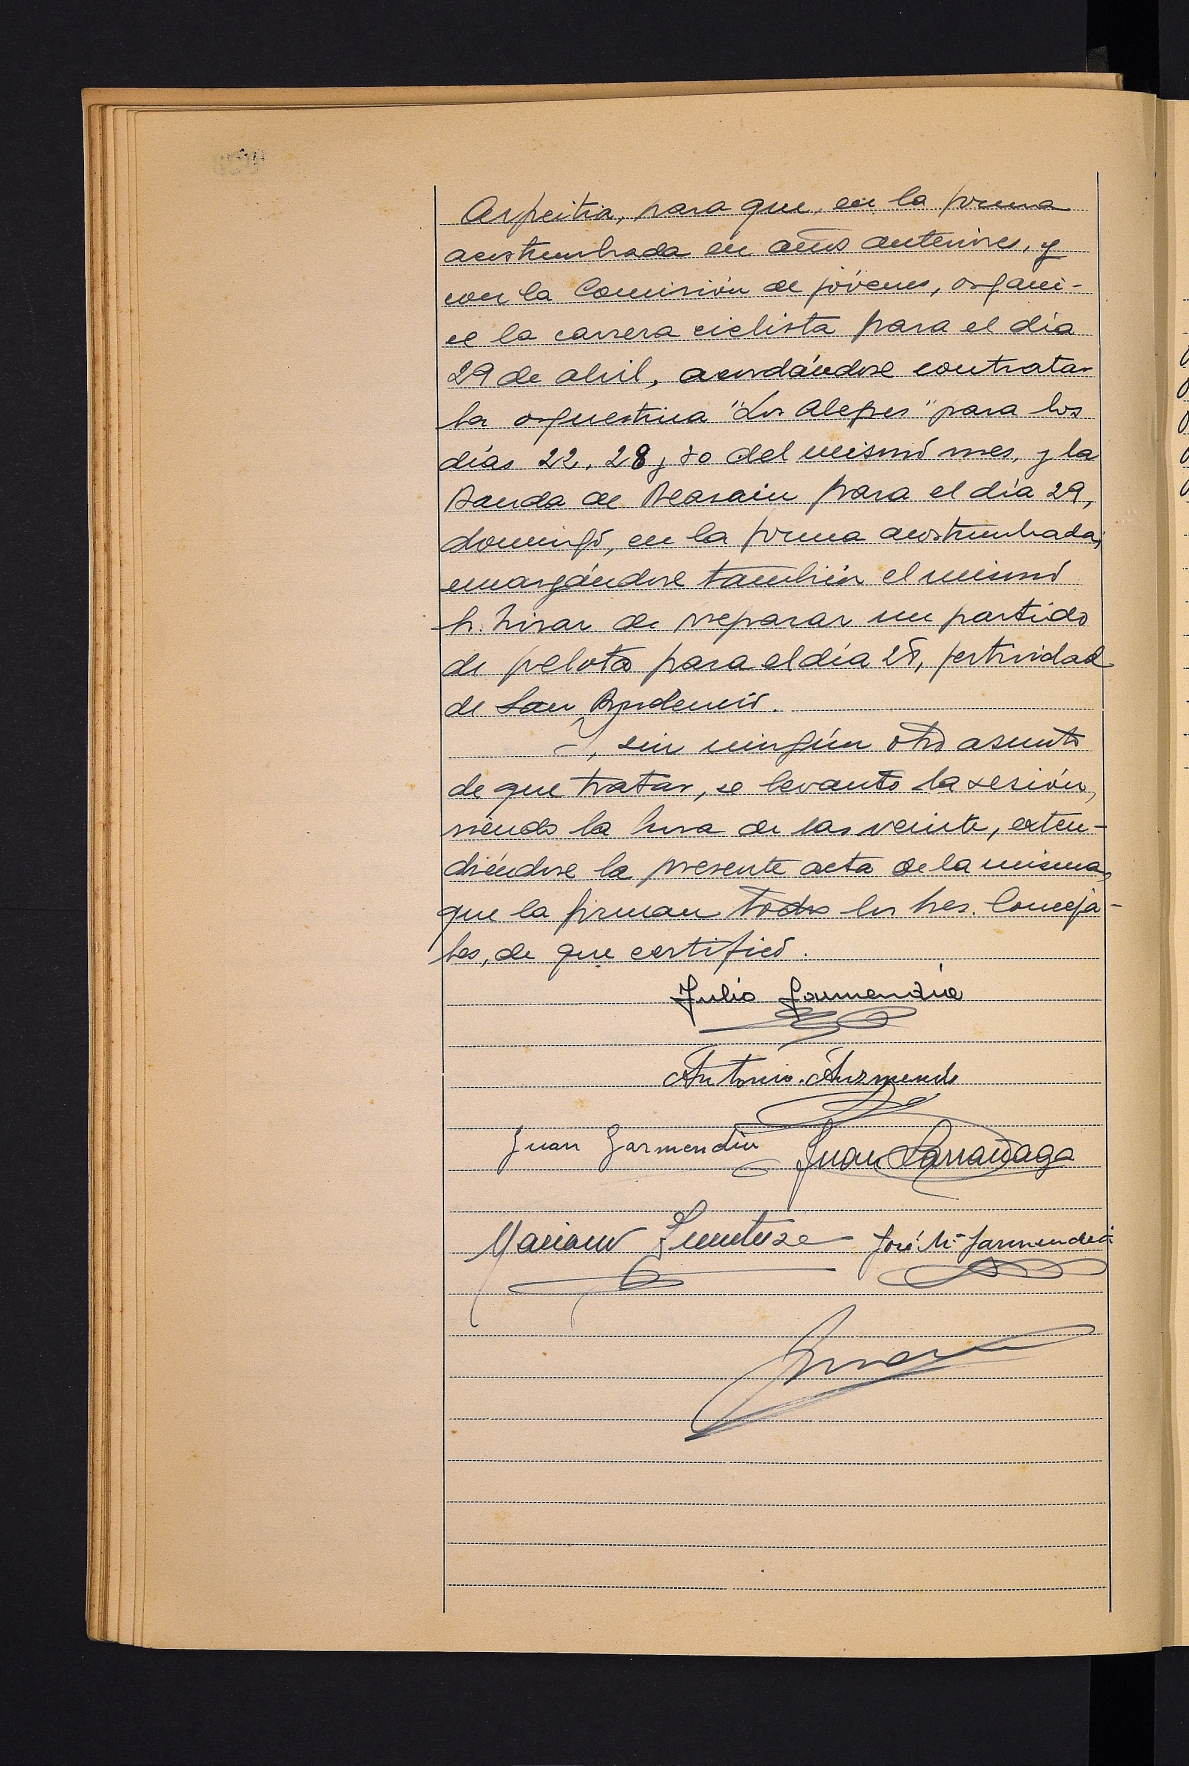 Azpeitia, para que, en la forma
acostumbrada en años anteriores, y
con la Comisión de jóvenes, organi-
ce la carrera ciclista para el día
29 de abril, acordándose contratar
la orquestina "Los Alegres" para los
días 22, 28 y 30 del mismo mes, y la
Banda de Beasain para el día 29,
domingo, en la forma acostumbrada,
encargándose también el mismo
Sr. de preparar un partido
de pelota para el día 28, festividad
de San Prudencio.
Y, sin ningún otro asunto
de que tratar, se levantó la sesión,
siendo la hora de las veinte, exten-
diéndose la presente acta de la misma,
que la firman todos los Sres. Conceja-
les, de que certifico.
Julio Garmendia
Antonio Auzmendi
Juan Garmendia Juan Larrañaga
Mariano José Mª Garmendia